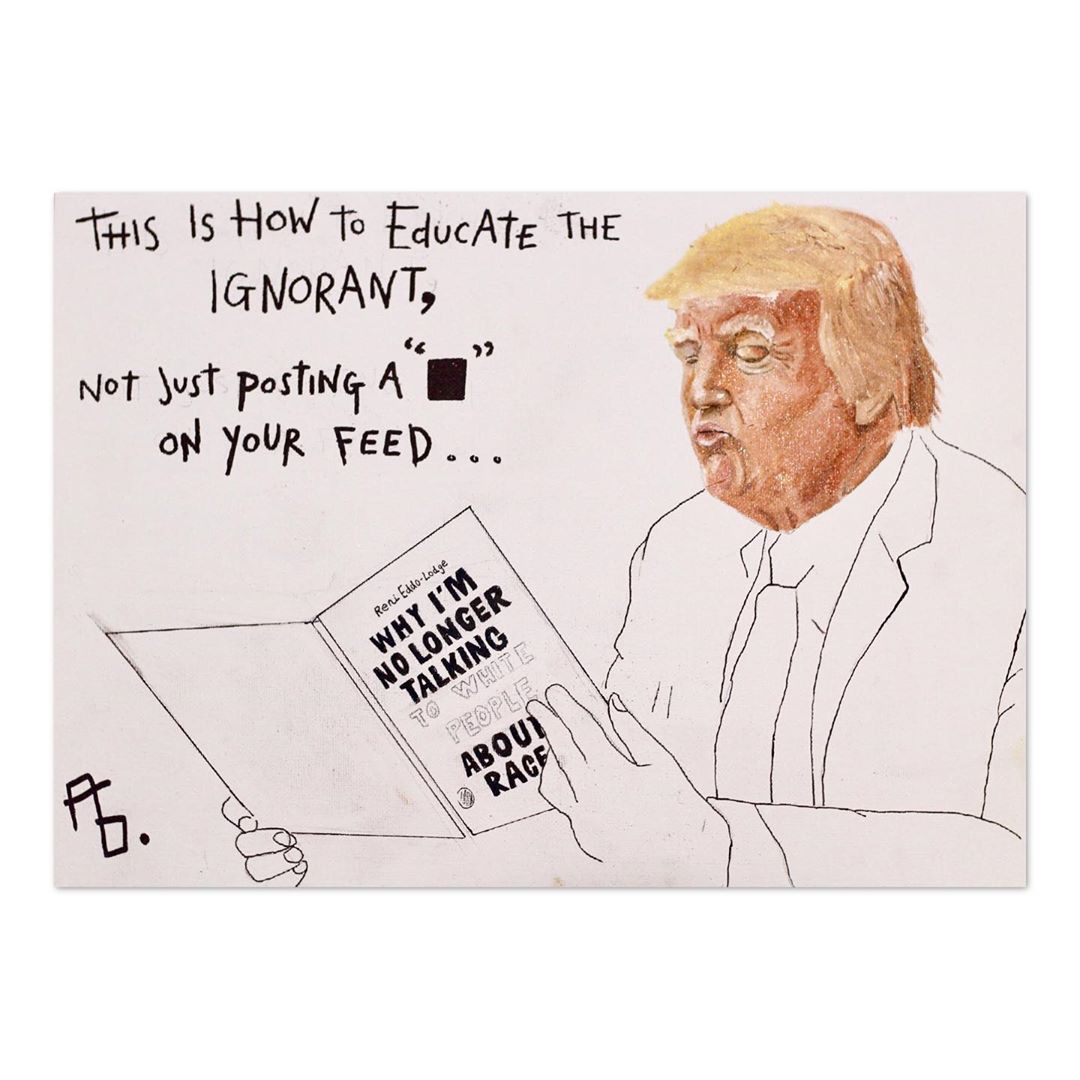 THIS IS HOW TO EDUCATE THE
IGNORANT,
NOT JUST POSTING A "■"
ON YOUR FEED...
Reni Eddo-Lodge
WHY I'M
NO LONGER
TALKING
TO WHITE
PEOPLE
ABOUT
RACE